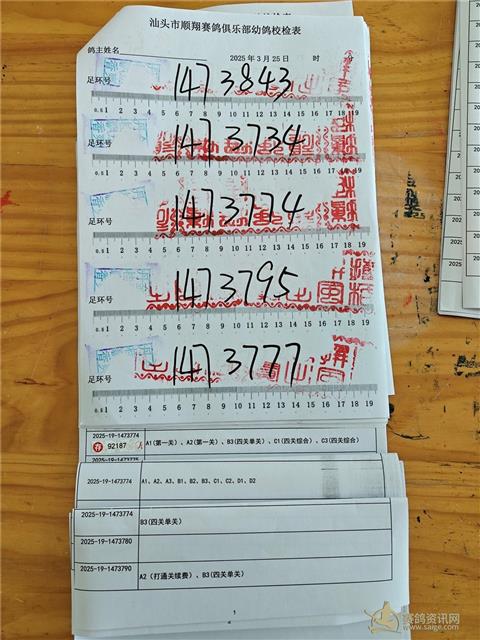 汕头市顺翔赛鸽俱乐部幼鸽校检表
鸽主姓名
2025 年 3 月 25 日 时
足环号
1473843
0.5 1 2 3 4 5 6 7 8 9 10 11 12 13 14 15 16 17 18 19
足环号
1473734
0.5 1 2 3 4 5 6 7 8 9 10 11 12 13 14 15 16 17 18 19
足环号
1473774
0.5 1 2 3 4 5 6 7 8 9 10 11 12 13 14 15 16 17 18 19
足环号
1473795
0.5 1 2 3 4 5 6 7 8 9 10 11 12 13 14 15 16 17 18 19
足环号
1473777
0.5 1 2 3 4 5 6 7 8 9 10 11 12 13 14 15 16 17 18 19
2025-19-1473774
92187
A1(第一关)、A2(第一关)、B3(四关单关)、C1(四关综合)、C3(四关综合)
2025-19-1473774
A1、A2、A3、B1、B2、B3、C1、C2、D1、D2
2025-19-1473774
B3(四关单关)
2025-19-1473780
2025-19-1473790
A2（打通关续费）、B3(四关单关)
赛鸽资讯网
www.saige.com